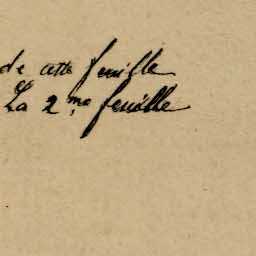 de cette feuille
La 2.me feuille